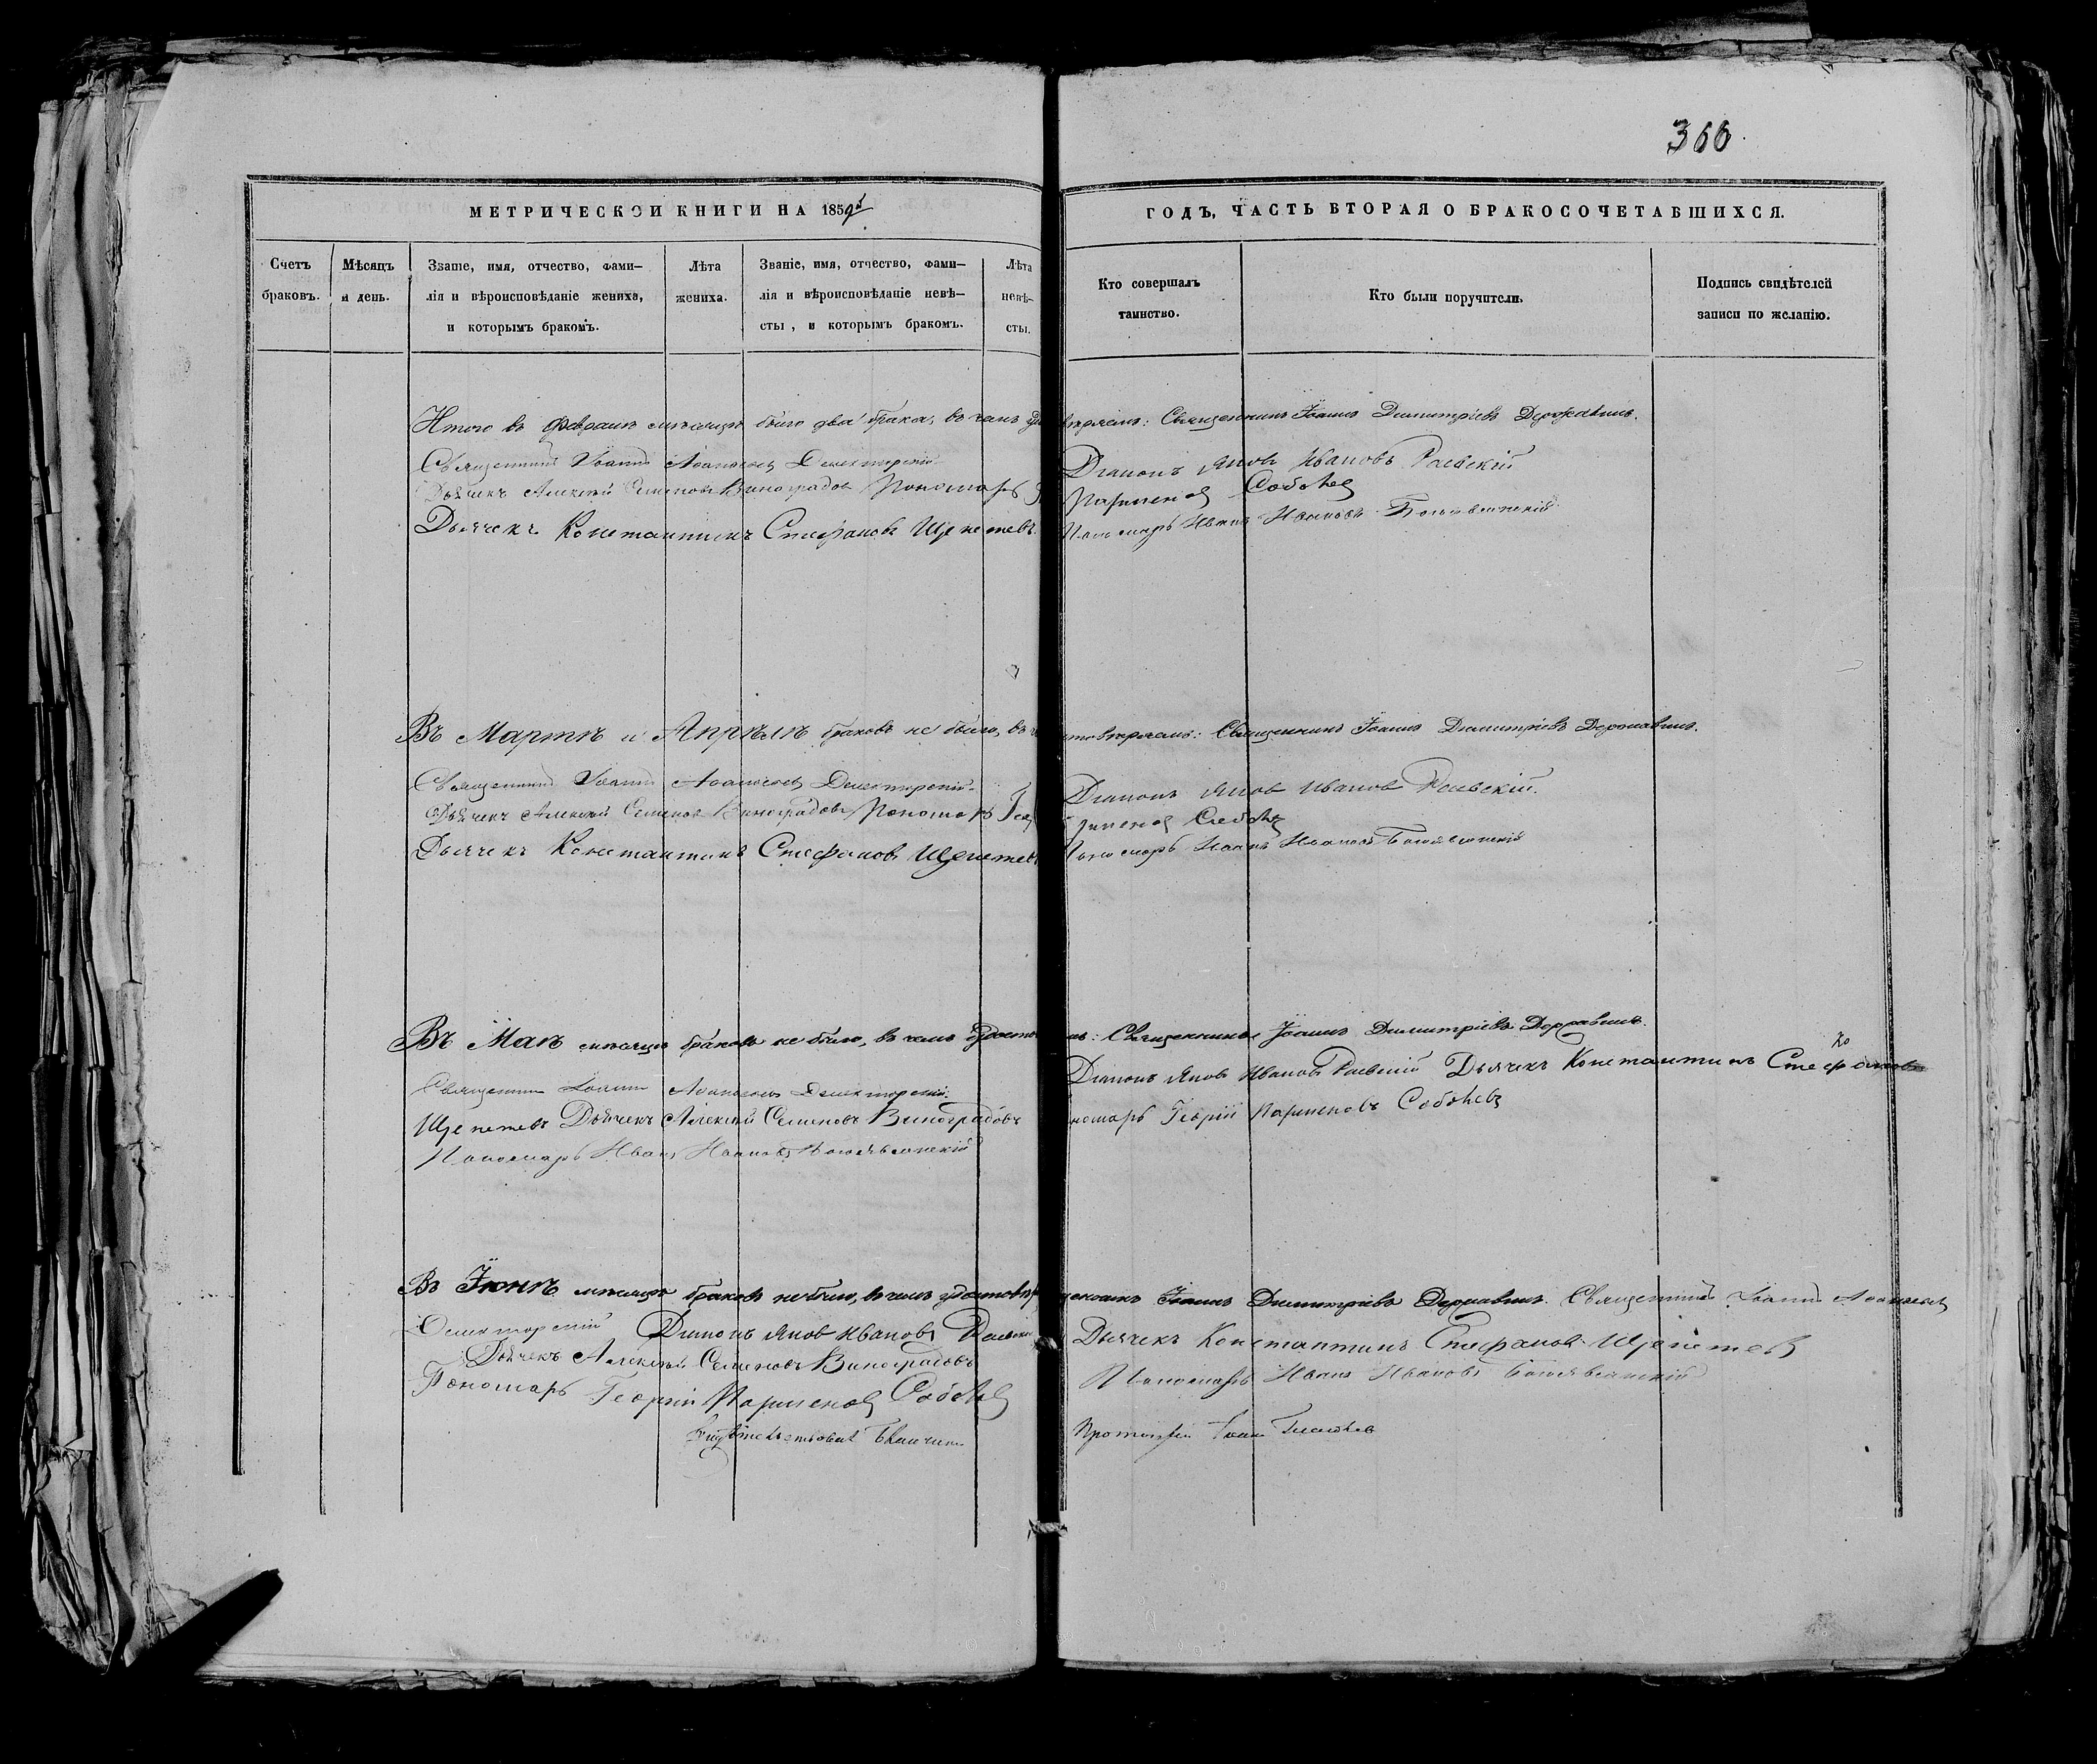 366
МЕТРИЧЕСКОИ КНИГИ НА 1859й
ГОДЪ, ЧАСТЬ ВТОРАЯ О БРАКОСОЧЕТАВШИХСЯ.
Счетъ браковъ.
Мѣсяцъ и день.
Званіе, имя, отчество, фами-
лія и вѣроисповѣданіе жениха,
и которымъ бракомъ.
Лѣта жениха.
Званіе, имя, отчество, фами-
лія и вѣроисповѣданіе невѣ-
сты, и которымъ бракомъ.
Лѣта невѣ-
сты.
Кто совершалъ
таинство.
Кто были поручители.
Подпись свидѣтелей
записи по желанію.
Итого въ Февралѣ мѣсяцѣ было два брака, въ чемъ удо вѣряемъ: Священникъ Іоаннъ Димитріевъ Державинъ.
Священникъ Іоаннъ Діаконъ Яковъ Ивановъ Раевскій
Дьячекъ Алексѣй Семеновъ Виноградовъ Пономарь Парменовъ Соболевъ
Дьячекъ Константинъ Стефановъ Щепетевъ Пономарь Иванъ Ивановъ Богоявленскій
Въ Мартѣ и Апрѣлѣ браковъ не было, въ стовѣряемъ: Священникъ Іоаннъ Димитріевъ Державинъ.
Священникъ Іоаннъ Діаконъ Яковъ Ивановъ Раевскій.
Дьячекъ Алексѣй Семеновъ Виноградовъ Пономарь Соболевъ
Дьячекъ Константинъ Стефановъ Щепетевъ Пономарь Иванъ Ивановъ Богоявленскій
Въ Маѣ мѣсяцѣ браковъ не было, въ чемъ удосто Священникъ Іоаннъ Димитріевъ Державинъ.
Священникъ Іоаннъ Діаконъ Яковъ Ивановъ Раевскій Дьячекъ Константинъ Стефановъ
Щепетевъ Дьячекъ Алексѣй Семеновъ Виноградовъ номарь Георгій Парменовъ Соболевъ
Пономарь Иванъ Ивановъ Богоявленскій
Въ Іюнѣ мѣсяцѣ браковъ не было, въ чемъ удостовѣр Іоаннъ Димитріевъ Державинъ. Священникъ Іоаннъ
Діаконъ Яковъ Ивановъ Раевскій Дьячекъ Константинъ Стефановъ Щепетевъ
Дьячекъ Алексѣй Семеновъ Виноградовъ Пономарь Иванъ Ивановъ Богоявленскій
Пономарь Георгій Парменовъ Соболевъ
Іоаннъ